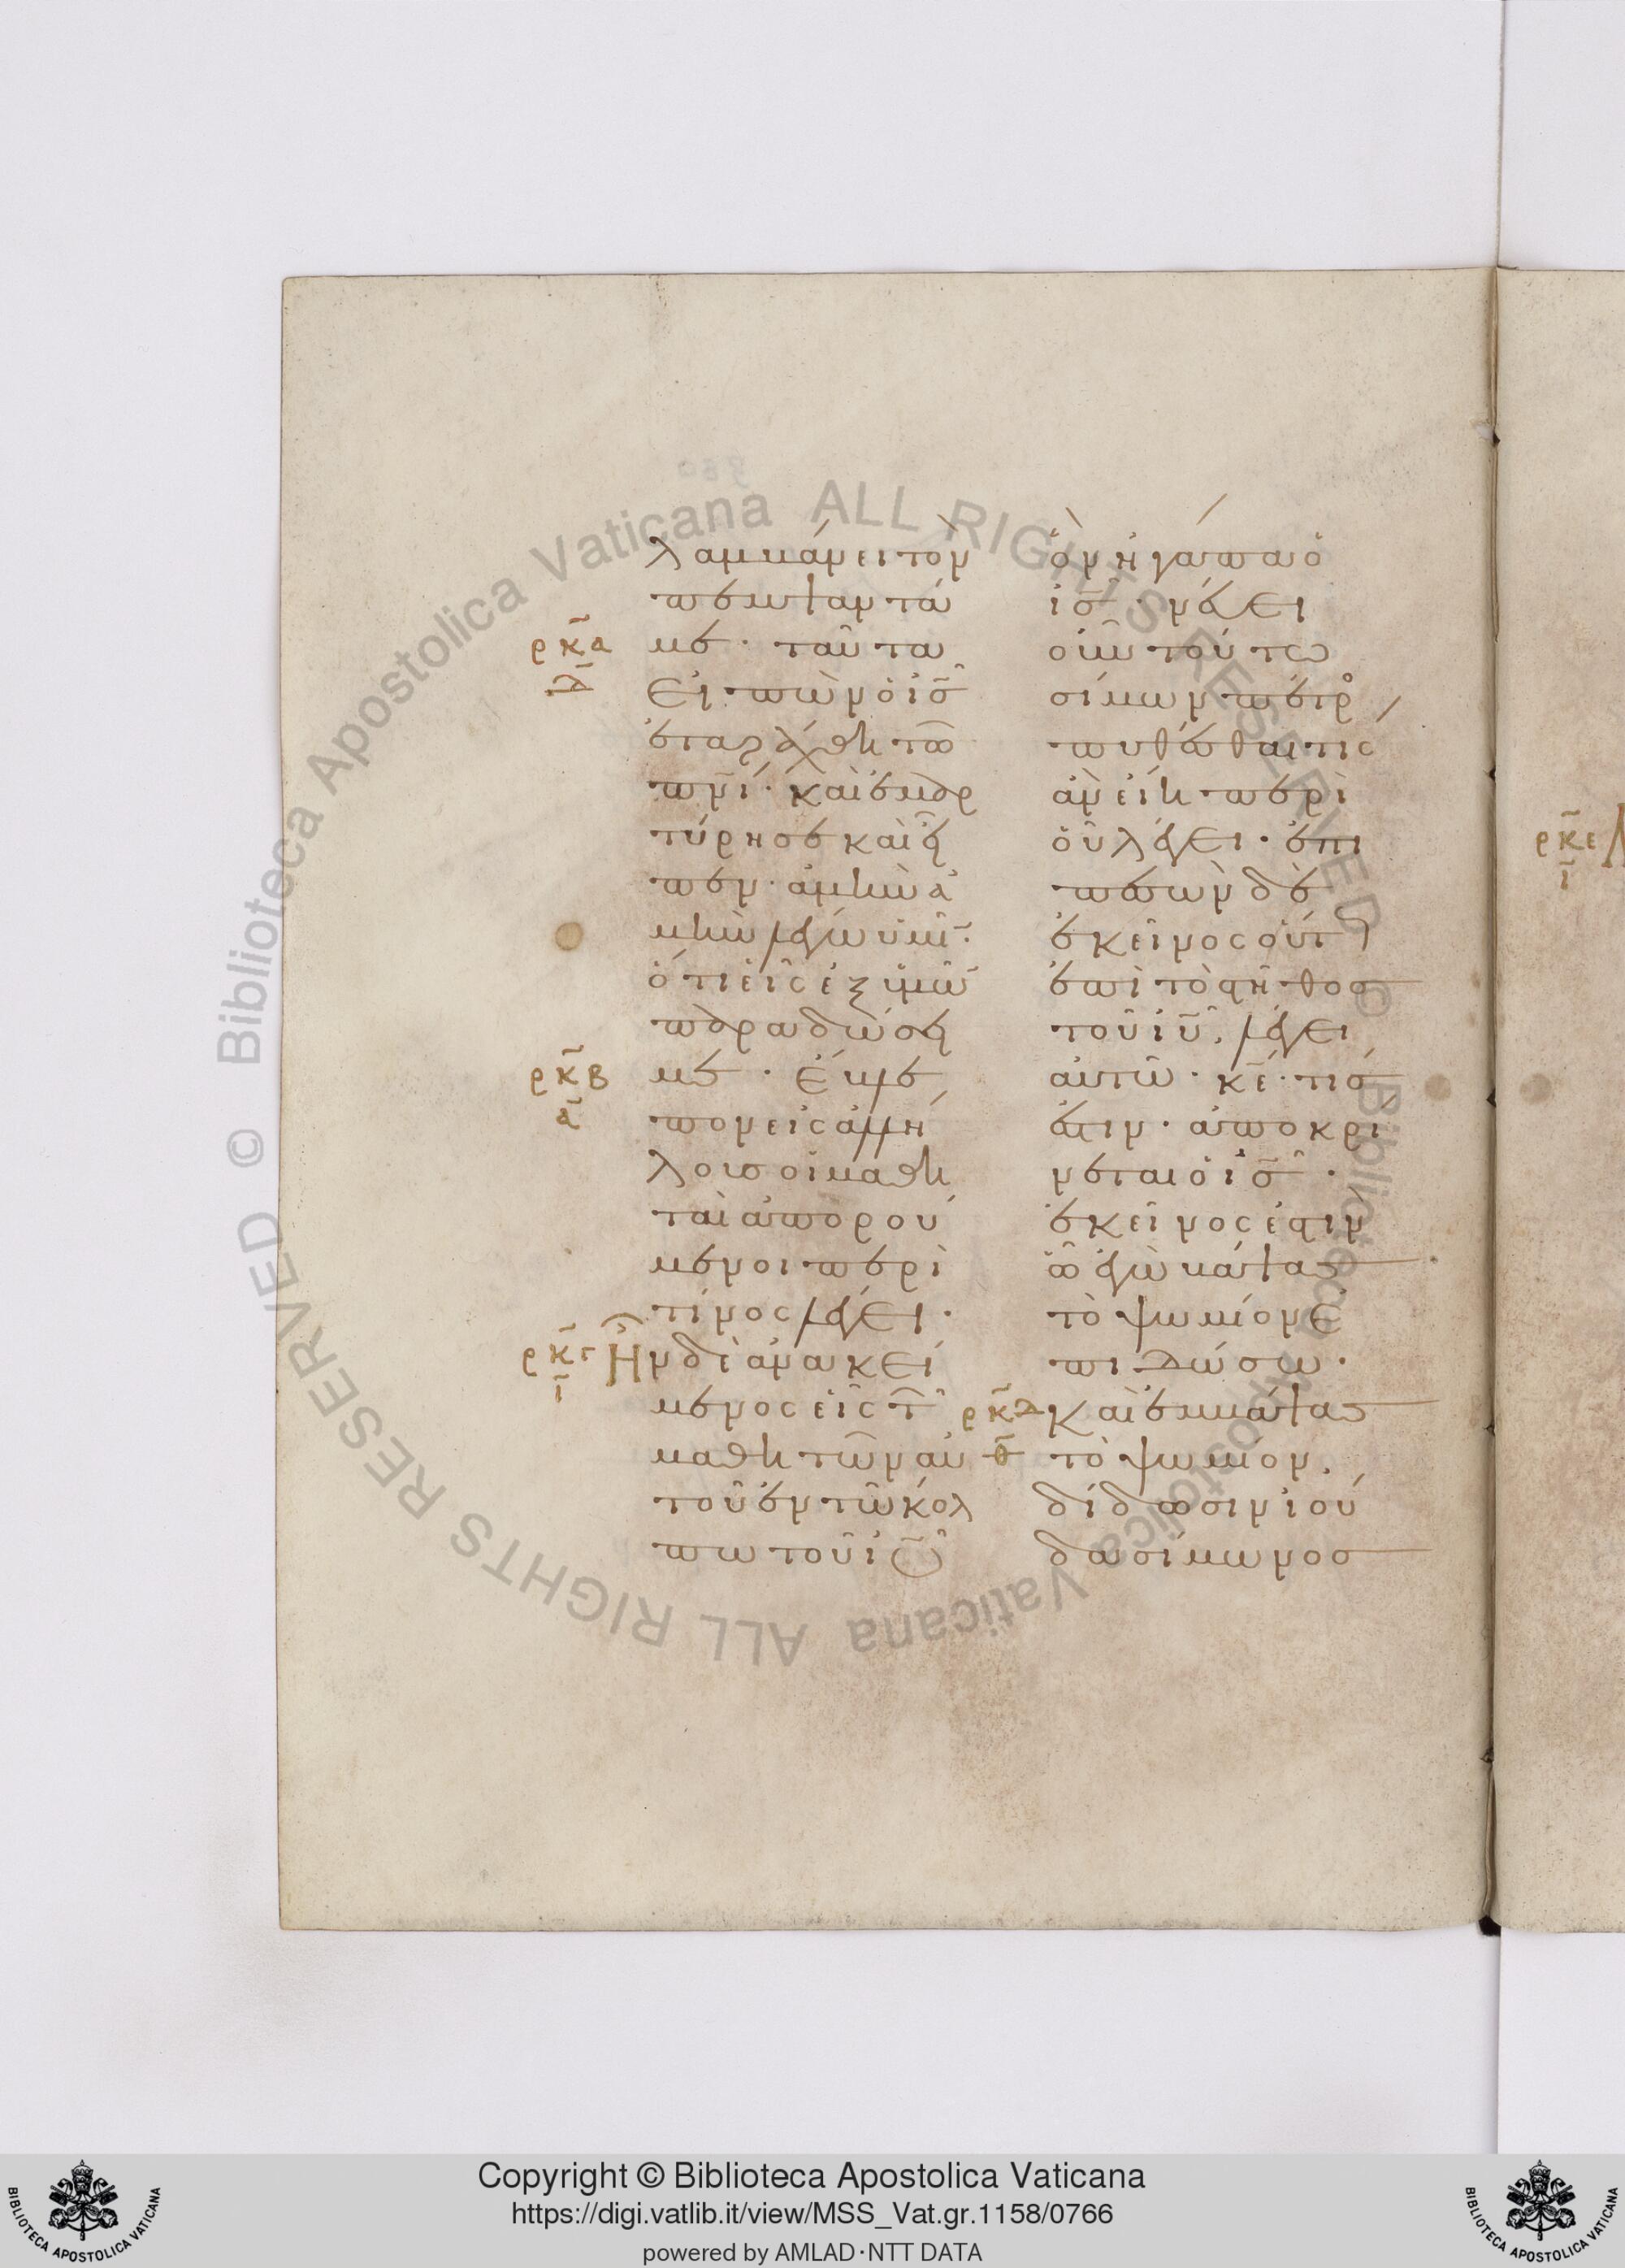 λαμβάνει τὸν
πέμψαντά
ρκ̄α με · ταῦτα
δ̄ εἰπὼν ὁ ἰς̄
ἐταράχθη τῶ
πνῑ · καὶ ἐμαρ
τύρησε καὶ εἶ
πεν · ἀμὴν ἀ
μὴν λέγω ὑμῖ ·
ὅτι εἷς ἐξ ὑμῶ
παραδώσει
ρκ̄β με · ἔβλε
ᾱ πον εἰς ἀλλή
λους οἱ μαθη
ταὶ ἀπορού
μενοι περὶ
τίνος λέγει ·
ρκ̄γ Ἦν δὲ ἀνακεί
ῑ μενος εἷς τ
μαθητῶν αὐ
τοῦ ἐν τῶ κόλ
πω τοῦ ῑυ
ὃν ἠγάπα ὁ
ἰς̄ · νεύει
οὖν τούτω
σίμων πέτρο
πυθέσθαι τίς
ἂν εἴη περὶ
οὗ λέγει · ἐπι
πεσὼν δὲ
ἐκεῖνος οὕτ
ἐπὶ τὸ στῆθος
τοῦ ῑυ, λέγει
αὐτῶ · κ̄ε · τίς
ἐστιν · ἀποκρί
νεται ὁ ἰς̄ ·
ἐκεῖνός ἐστιν
ὧ ἐγὼ βάψας
τὸ ψωμίον ἐ
πιδώσω ·
ρκ̄δ καὶ ἐμβάψας
θ̄ τὸ ψωμίον,
δίδωσιν ἰού
δα σίμωνος
ρκ̄ε
ῑ
Copyright © Biblioteca Apostolica Vaticana
https://digi.vatlib.it/view/MSS_Vat.gr.1158/0766
powered by AMLAD·NTT DATA
BIBLIOTECA APOSTOLICA VATICANA
BIBLIOTECA APOSTOLICA VATICANA
© Biblioteca Apostolica Vaticana ALL RIGHTS RESERVED
© Biblioteca Apostolica Vaticana ALL RIGHTS RESERVED